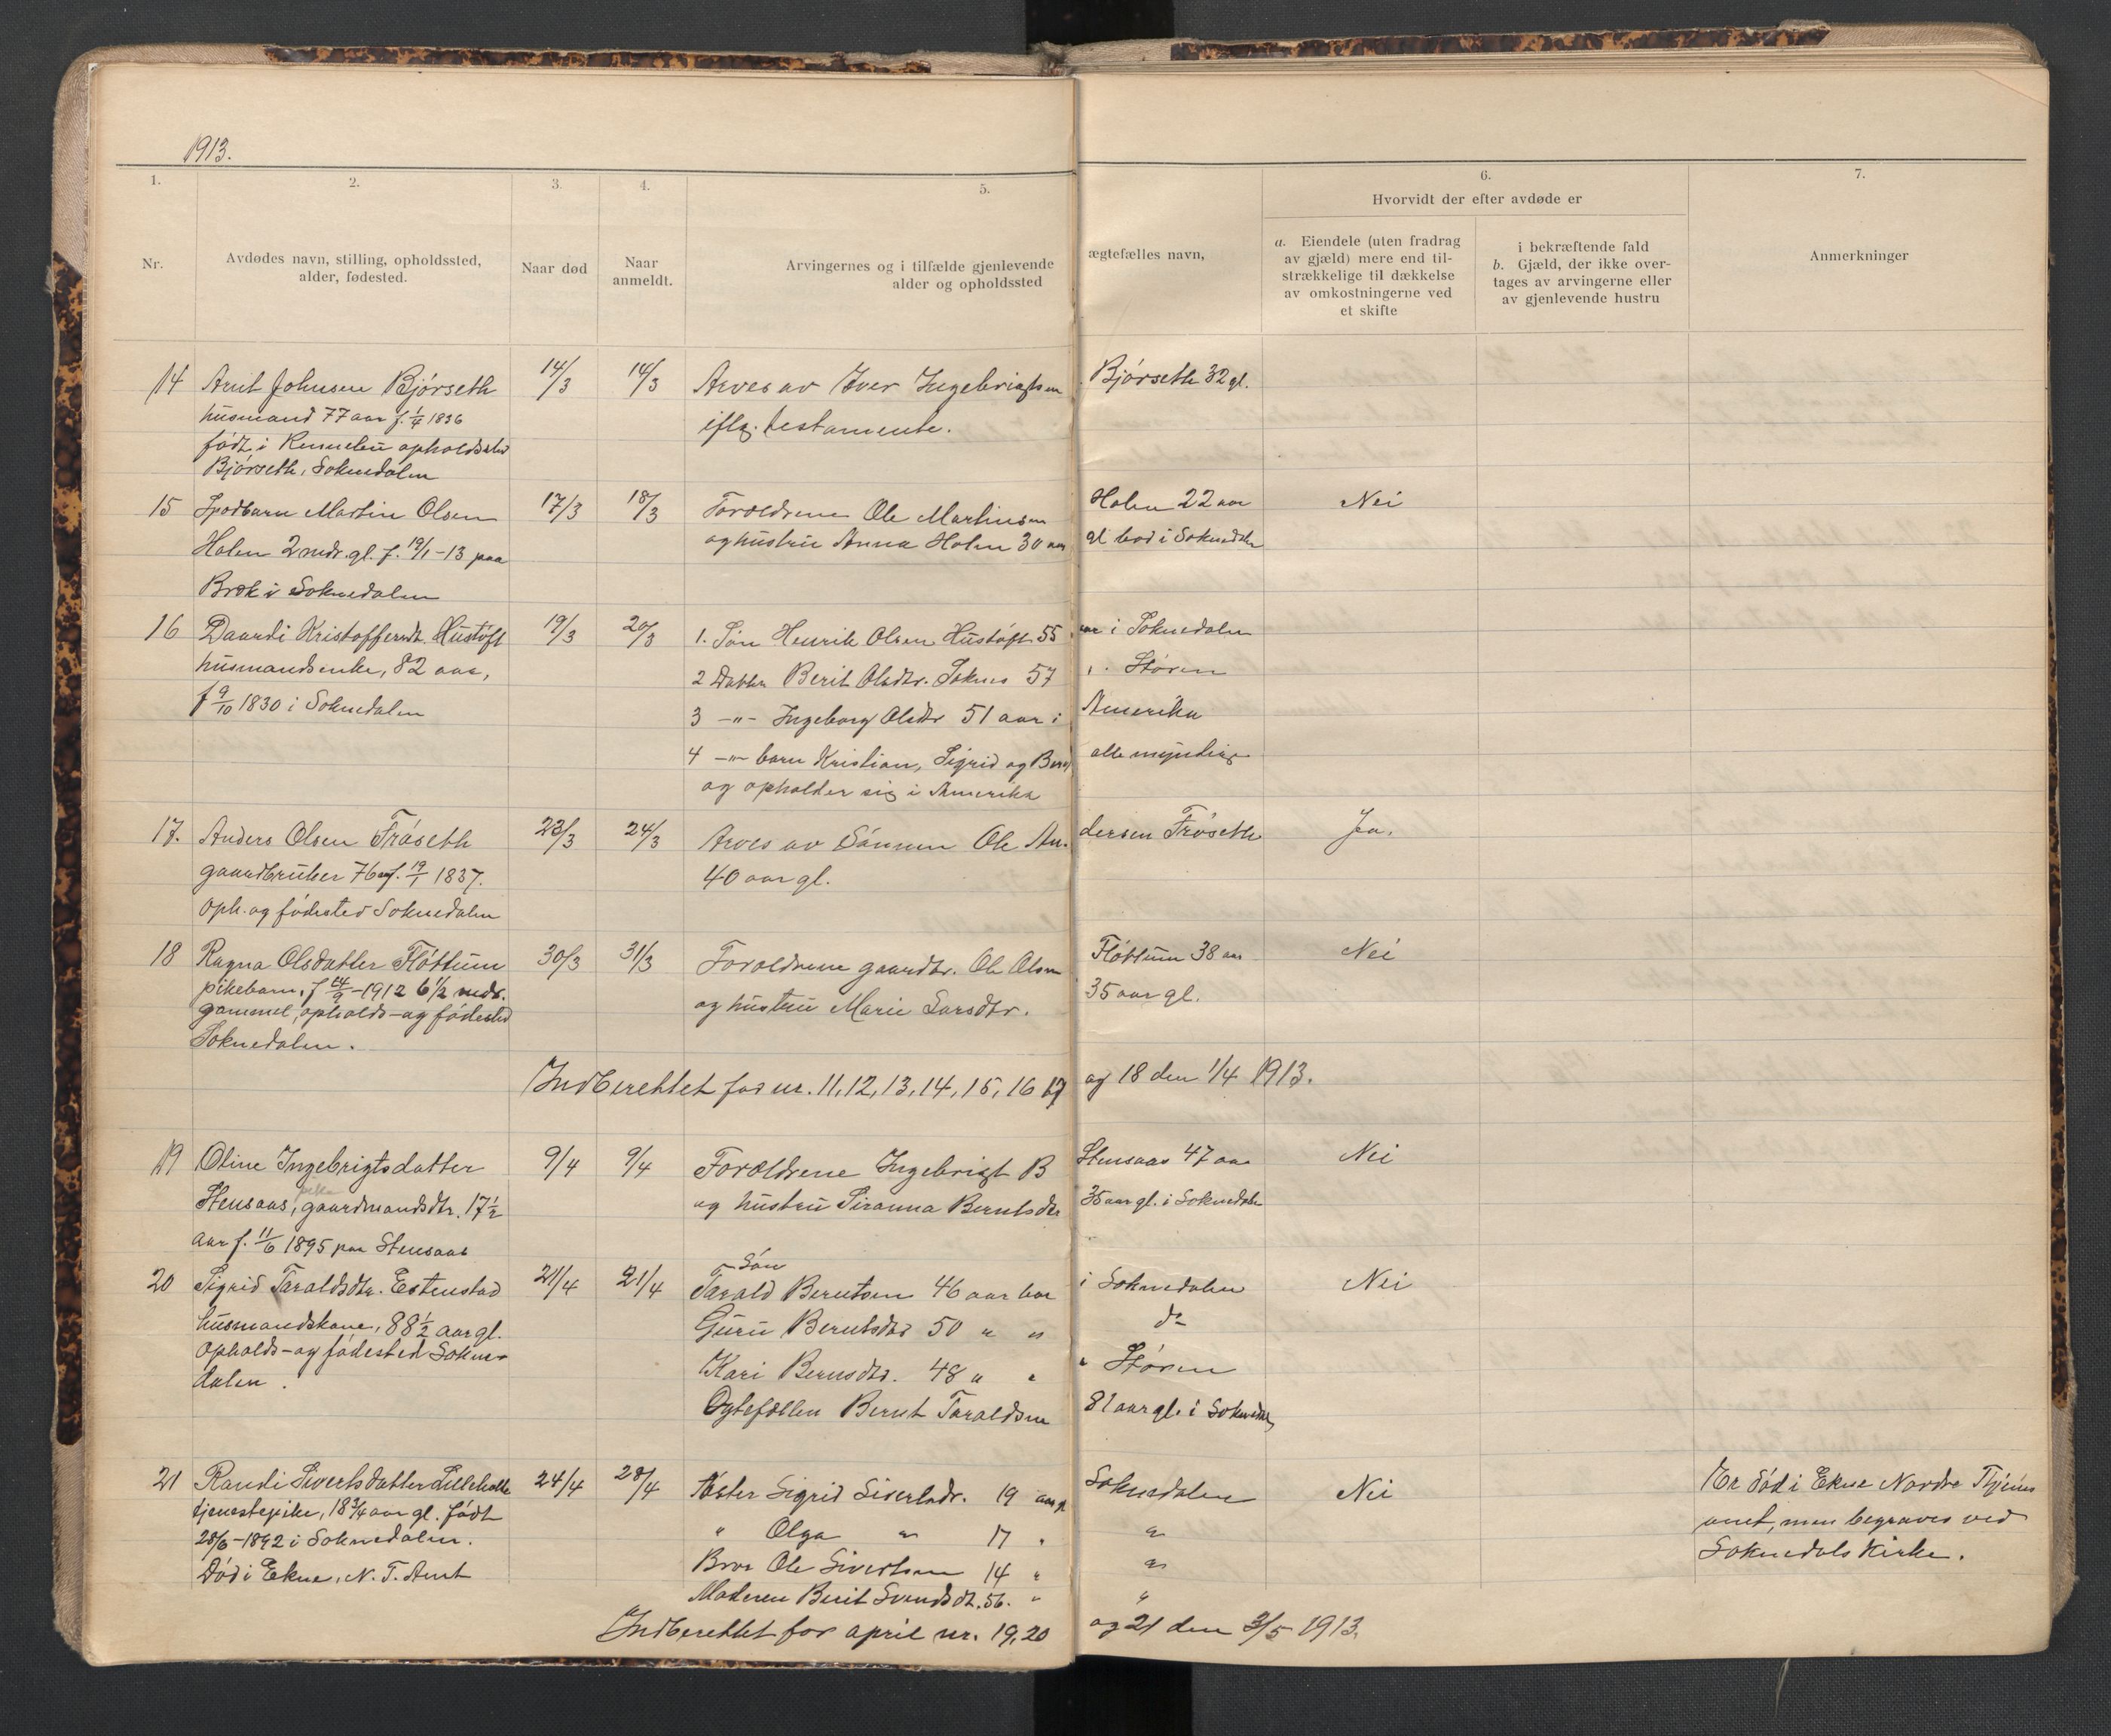 1913.
1. 2. 3. 4. 5. 6. 7.
Hvorvidt der efter avdøde er
Nr.
Avdødes navn, stilling, opholdssted,
alder, fødested.
Naar død
Naar
anmeldt.
Arvingernes og i tilfælde gjenlevende ægtefælles navn,
alder og opholdssted
a. Eiendele (uten fradrag
av gjæld) mere end til-
strækkelige til dækkelse
av omkostningerne ved
et skifte
i bekræftende fald
b. Gjæld, der ikke over-
tages av arvingerne eller
av gjenlevende hustru
Anmerkninger
14 Arnt Johnsen Bjørseth 14/3 14/3 Arves av Iver Ingebrigtsen Bjørseth 32 gl.
husmand 77 aar f. 1/4 1836 iflg. testamente.
født i Rennebu opholdssted
Bjørseth, Soknedalen
15 Spædbarn Martin Olsen 17/3 18/3 Forældrene Ole Martinsen Holen 22 aar Nei
Holen 2 mdr. gl. f. 19/1-13 paa og hustru Anna Holen 30 aar gl bor i Soknedalen
Bræk i Soknedalen
16 Daardi Kristoffersdt. Hustøft 19/3 20/3 1. Søn Henrik Olsen Hustøft 55 aar i Soknedalen
husmandsenke, 82 aar, 2 Datter Berit Olsdtr. Soknes 57 " Støren
f 9/10 1830 i Soknedalen 3 -"- Ingeborg Olsdtr 51 aar i Amerika
4 -"- barn Kristian, Sigrid og alle myndige
og opholder sig i Amerika
17. Anders Olsen Frøseth 23/3 24/3 Arves av Sønnen Ole Andersen Frøseth Ja.
gaardbruker 76 f. 19/1 1837. 40 aar gl.
Oph. og fødested Soknedalen
18 Ragna Olsdatter Fløttum 30/3 31/3 Forældrene gaardbr. Ole Olsen Fløttum 38 aar Nei
pikebarn, f 14/9-1912 6 1/2 mdr. og hustru Marie Larsdtr. 35 aar gl.
gammel, opholds- og fødested
Soknedalen.
Indberettet for nr. 11, 12, 13, 14, 15, 16 17 og 18 den 1/4 1913.
19 Oline Ingebrigtsdatter 9/4 9/4 Forældrene Ingebrigt B Stensaas 47 aar Nei
pike
Stensaas, gaardmandsdtr. 17 1/2 og hustru Siranna Berntsdtr 35 aar gl. i Soknedalen
aar f. 11/6 1895 paa Stensaas
Søn
20 Sigrid Taraldsdtr. Estenstad 21/4 21/4 Tarald Berntsen 46 aar bor i Soknedalen Nei
husmandskone, 88 1/2 aar gl. Guru Berntsdtr 50 " " do
Opholds- og fødested Sokne- Kari Berntsdtr. 48 " " " Støren
dalen. Ægtefællen Bernt Taraldsen 81 aar gl. i Soknedal
21 Randi Sivertsdatter Lillehalle 24/4 28/4 Søster Sigrid Sivertsdr. 19 aar gl Soknedalen Nei Er død i Ekne Nordre Thjems
tjenestepike, 18 3/4 aar gl. født " Olga " 17 " " amt, men begraves ved
28/6-1892 i Soknedalen. Bror Ole Sivertsen 14 " " Soknedals Kirke.
Død i Ekne, N. T. Amt Moderen Berit Svendsdt. 56. " "
Indberettet for april nr. 19, 20 og 21 den 3/5 1913.